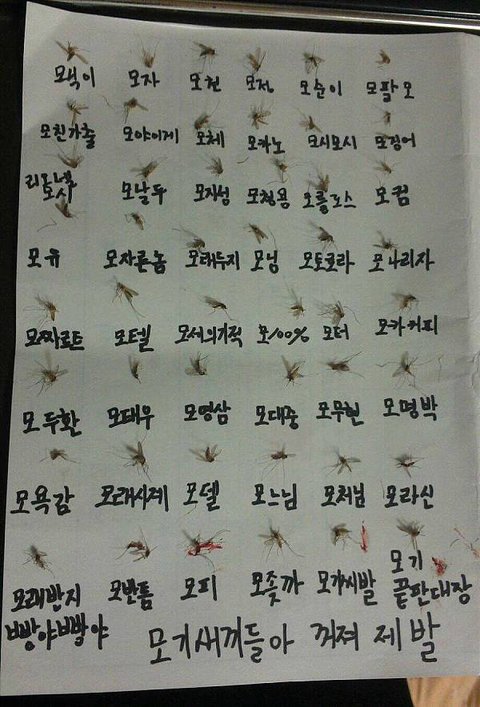 모넥이 모자 모천 모정 모순이 모팔모
모친가출 모야이게 모체 모카노 모시모시 모징어
리오넬모시 모날두 모지성 모청용 모를로스 모컴
모유 모자른놈 모태두지 모잉 모토로라 모나리자
모짜르트 모텔 모서의기적 모100% 모터 모카커피
모두환 모태우 모영삼 모대중 모무현 모명박
모욕감 모래시계 모델 모느님 모처님 모라신
모래반지빵야빵야 모반듬 모피 모좆까 모가시발 모기끝판대장
모기새끼들아 꺼져 제발